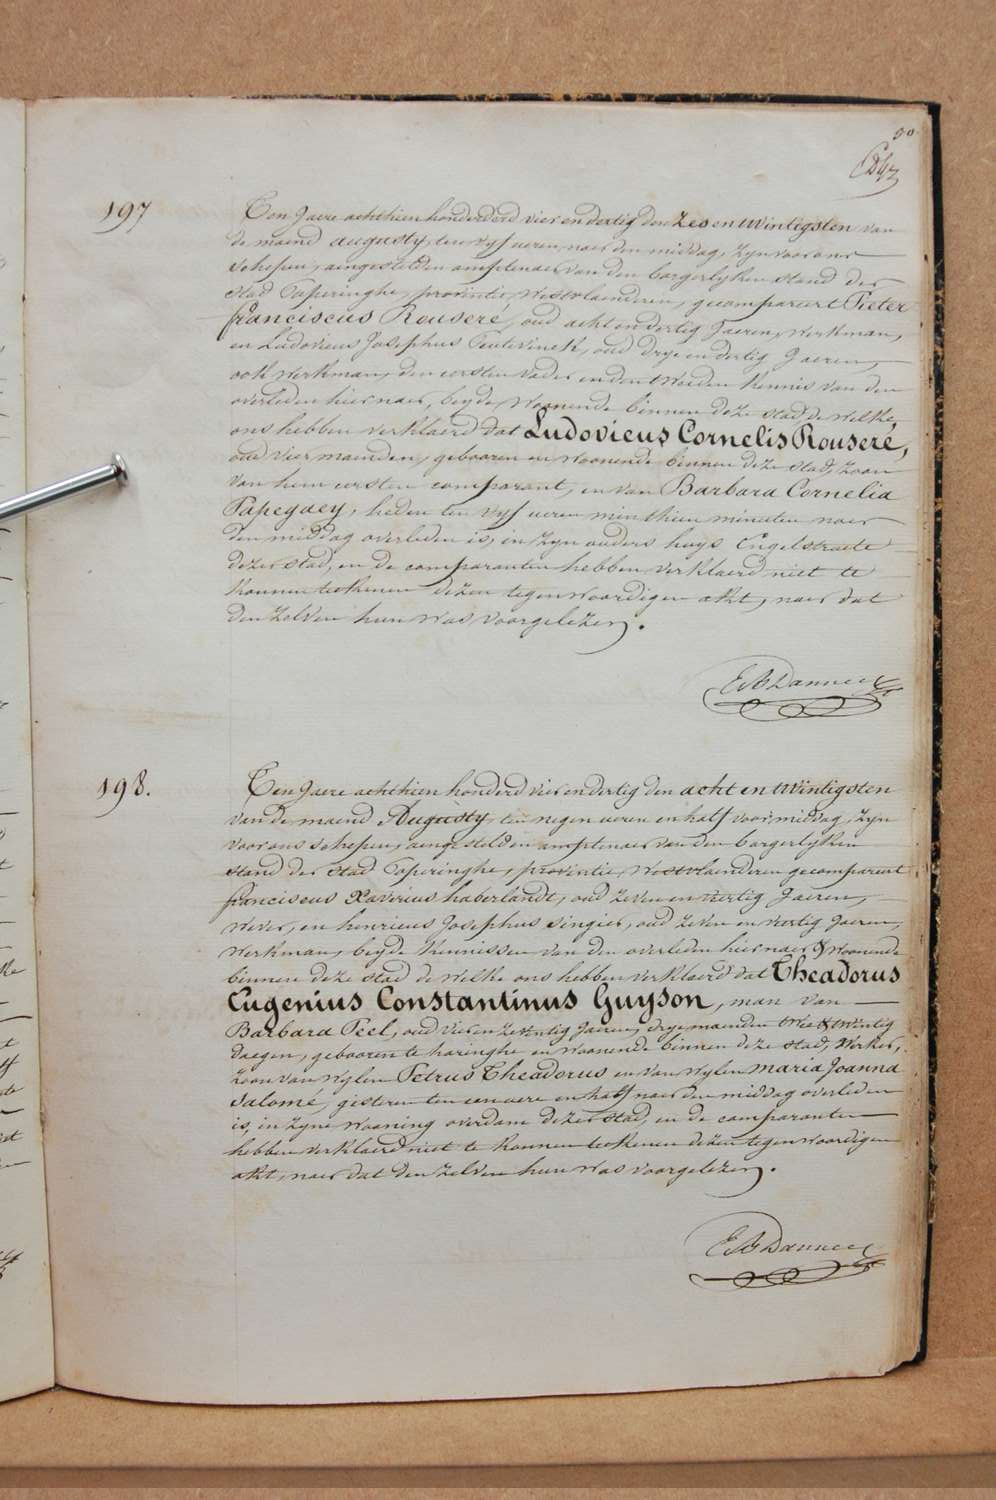 50
197
Ten Jaere achthien honderd vier en dertig den zes en twintigsten van
de maend augusty, ten vyf ueren naer den middag, zyn voor ons
schepen, aengestelden amptenaer van den borgerlyken stand der
stad Poperinghe, provintie Westvlaenderen, gecompareert Pieter
franciscus Rouseré, oud acht en dertig Jaeren, werkman,
en Ludovicus Josephus Teutevinck, oud drye en dertig Jaeren,
ook werkman, den eersten vader en den tweeden kennis van den
overleden hier naer, beyde woonende binnen deze stad, de welke
ons hebben verklaerd dat Ludovicus Cornelis Rouseré,
oud vier maenden, gebooren en woonende binnen deze stad, zoon
van hem eersten comparant, en van Barbara Cornelia
Papegaey, heden ten vyf ueren min thien minuten naer
den middag overleden is, in zyn ouders huys Engelstraete
dezer stad, en de comparanten hebben verklaerd niet te
konnen teekenen dezen tegenwoordigen akt, naer dat
den zelven hun was voorgelezen.
198.
Ten Jaere achthien honderd vier en dertig den acht en twintigsten
van de maend Augusty, ten negen ueren en half voormiddag, zyn
voor ons schepen, aengestelden amptenaer van den borgerlyken
stand der stad Poperinghe, provintie, Westvlaenderen gecompareert
franciscus Xaverius haberlandt, oud zeven en veertig Jaeren,
wever, en henricus Josephus Singier, oud zeven en veertig Jaeren,
werkman, beyde kennissen van den overleden hier naer & woonende
binnen deze stad de welke ons hebben verklaerd dat Theadorus
Eugenius Constantinus Guyson, man van
Barbara Peel, oud vier en zeventig Jaeren, drye maenden twee & twintig
daegen, gebooren te haringhe en woonende binnen deze stad, werker,
zoon van wylen Petrus Theadorus en van wylen maria Joanna
Salomé, gisteren ten een uere en half naer den middag overleden
is, in zyne wooning overdam dezer stad, en de comparanten
hebben verklaerd niet te konnen teekenen dezen tegenwoordigen
akt, naer dat den zelven hun was voorgelezen.